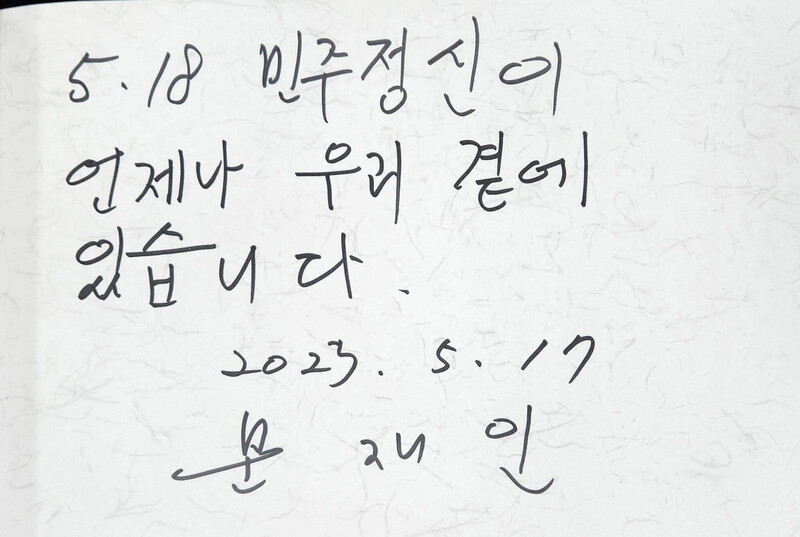 5.18 민주정신이
언제나 우리 곁에
있습니다.
2023. 5. 17
문 재 인